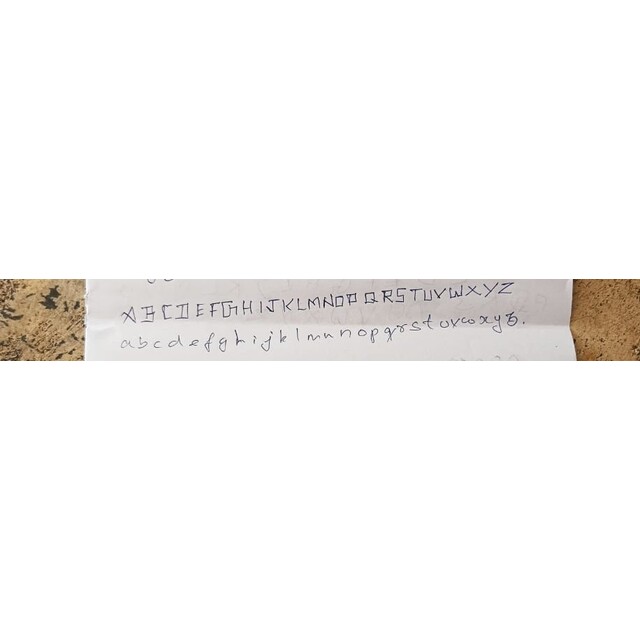 A B C D E F G H I J K L M N O P Q R S T U V W X Y Z
a b c d e f g h i j k l m n o p q r s t u v w x y z.